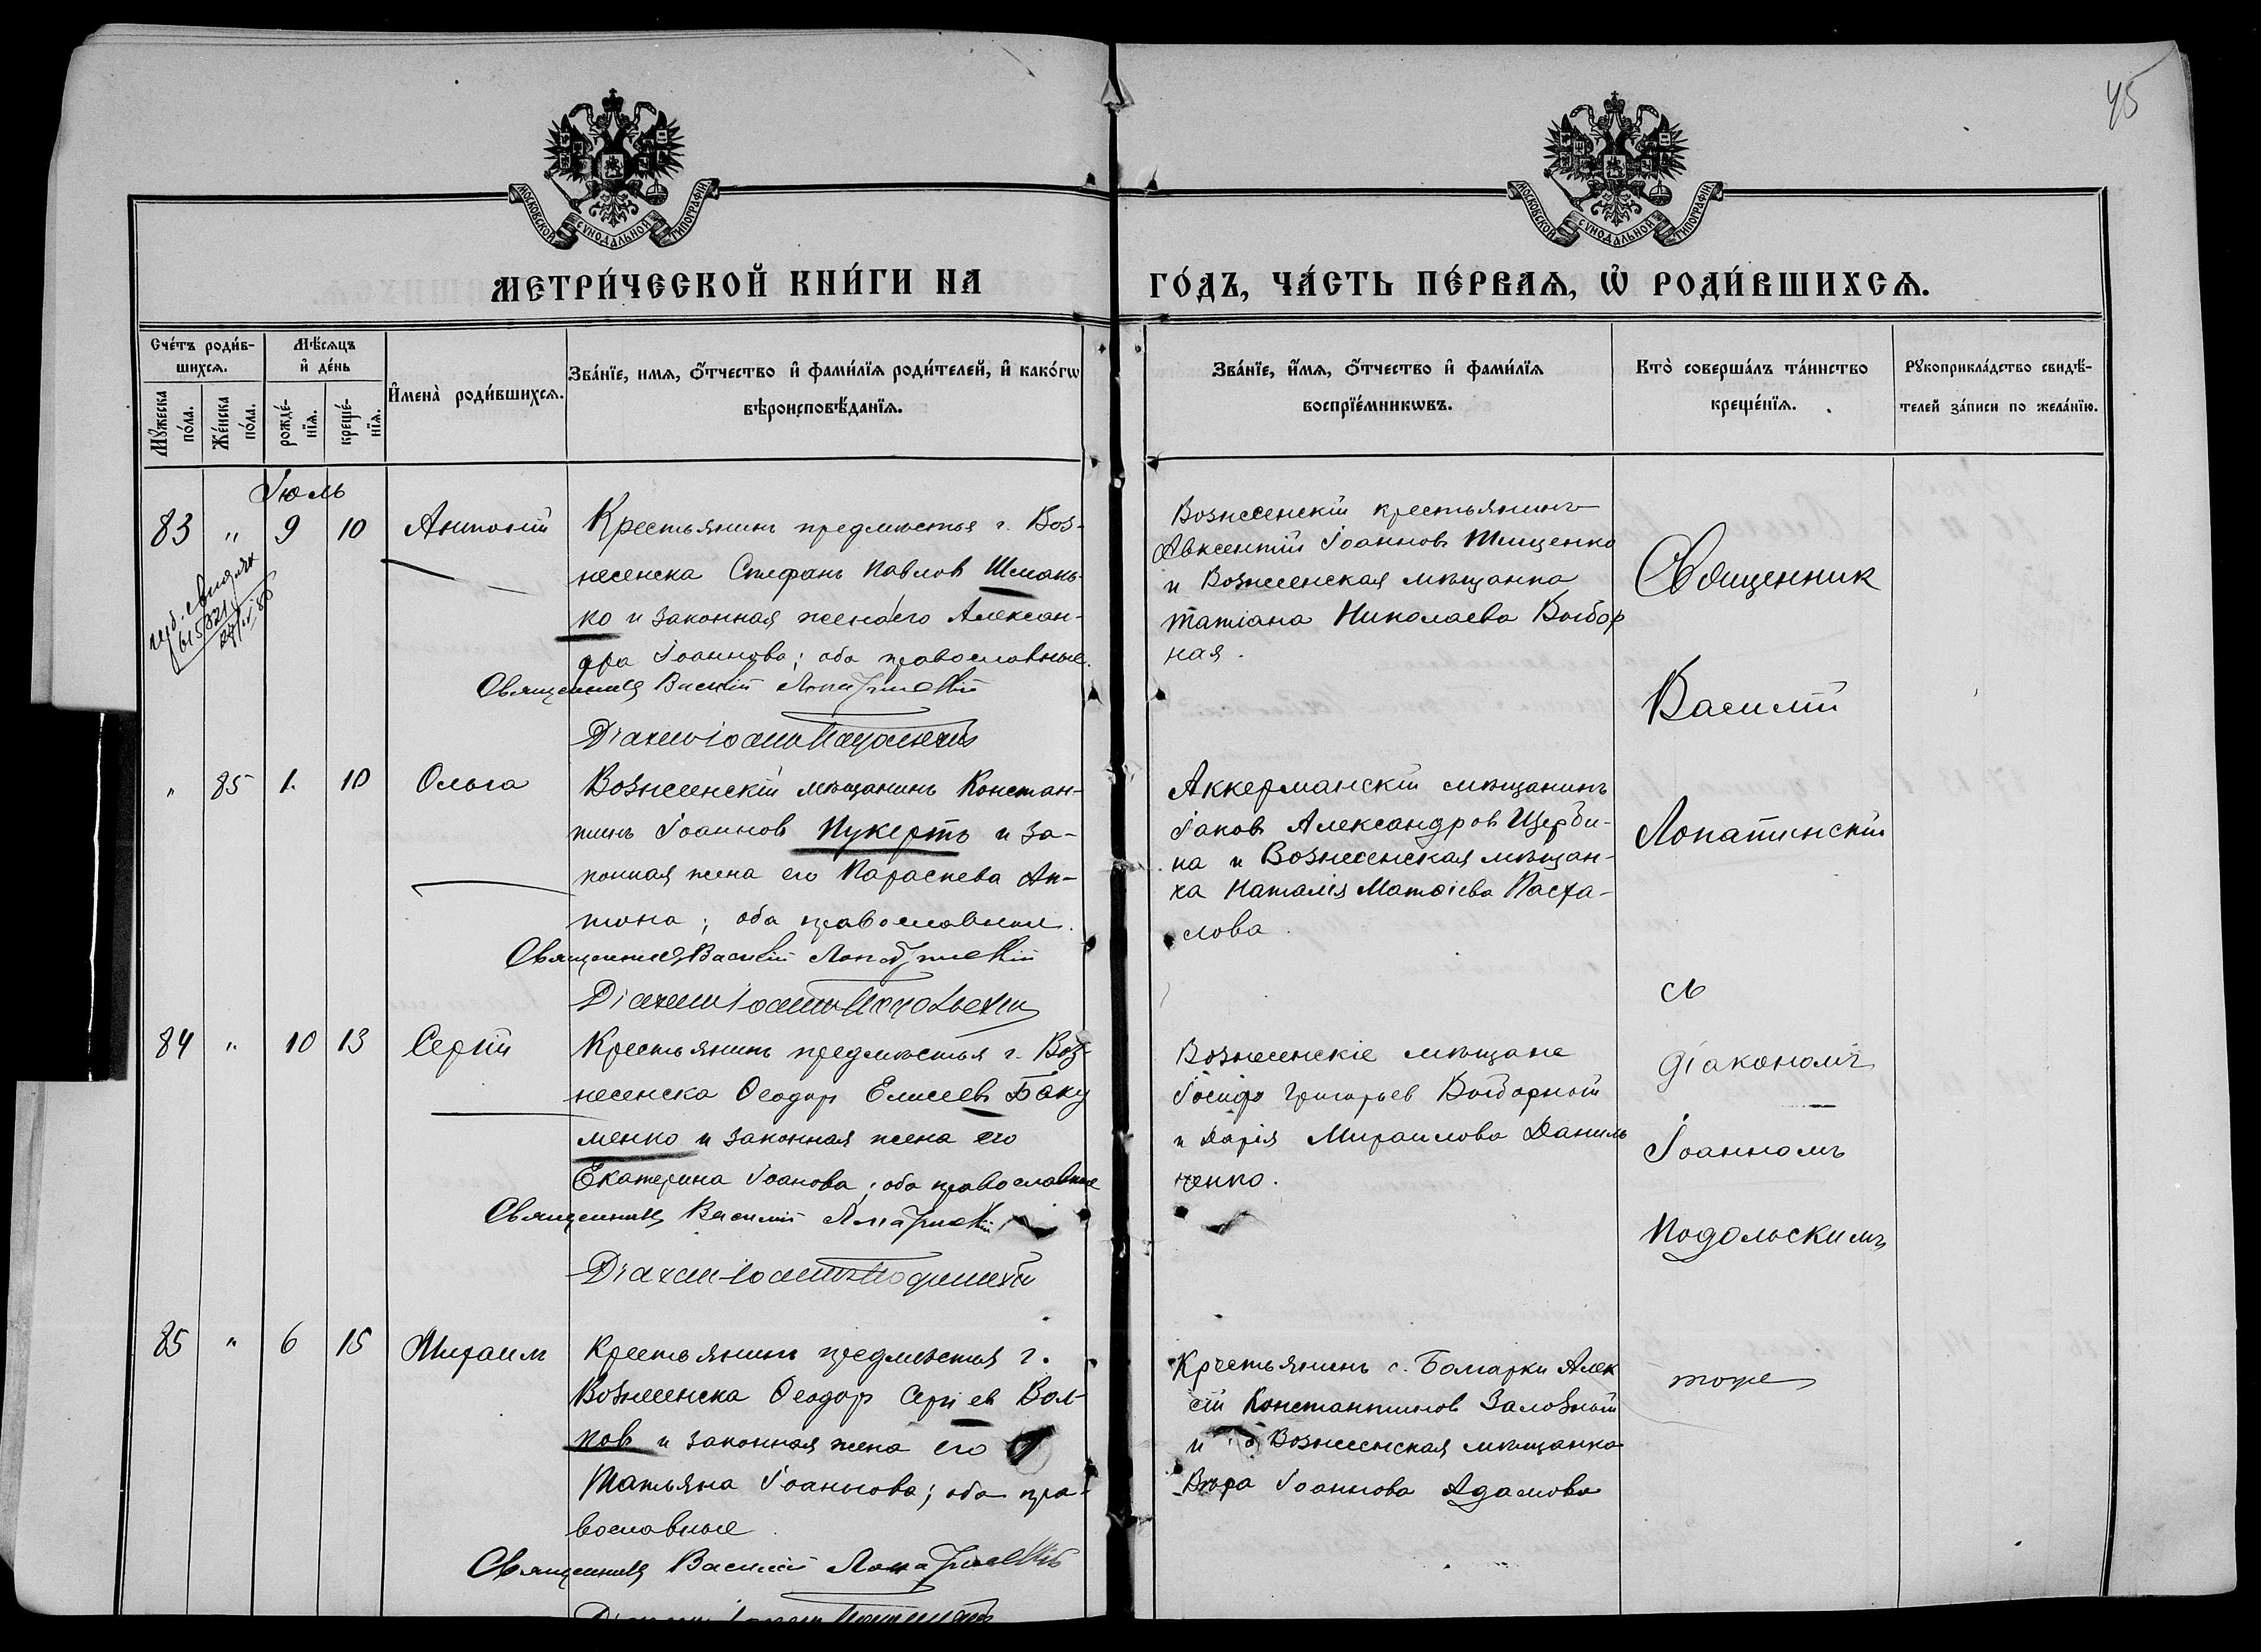 45
МОСКОВСКОЙ СѴНОДАЛЬНОЙ ТИПОГРАФІИ
МОСКОВСКОЙ СѴНОДАЛЬНОЙ ТИПОГРАФІИ
МЕТРИ́ЧЕСКОЙ КНИ́ГИ НА
ГО́ДЪ, ЧА́СТЬ ПЕ́РВАѦ, Ѡ҆ РОДИ́ВШИХСѦ.
Сче́тъ роди́в-
шихсѧ.
Мꙋ́жеска
по́ла.
Же́нска
по́ла.
Мѣ́сѧцъ
и҆ де́нь
рожде́-
нїѧ.
креще́-
нїѧ.
И҆мена̀ роди́вшихсѧ.
Зва́нїе, имѧ, ѻ҆́тчество и҆ фами́лїѧ роди́телей, и҆ како́гѡ
вѣроисповѣ́данїѧ.
Зва́нїе, и҆́мѧ, ѻ҆́тчество и҆ фами́лїѧ
воспрїе́мникѡвъ.
Кто̀ соверша́лъ та́инство
креще́нїѧ.
Рꙋкоприкла́дство свидѣ́-
телей за́писи по жела́нїю.
Іюль
83 " 9 10 Антоній
Крестьянинъ предмѣстья г. Воз-
несенска Стефанъ Павловъ Шмань-
ко и законная жена его Алексан-
дра Іоаннова; оба православные.
Священникъ Василій Лопатинскій
Діаконъ Іоаннъ Подольскій
Вознесенскій крестьянинъ
Авксентій Іоанновъ Тищенко
и Вознесенская мѣщанка
Татіана Николаева Выбор
ная.
Священник
Василій
Лопатинскій
съ
діакономъ
Іоанномъ
Подольскимъ
" 85 1. 10 Ольга
Вознесенскій мѣщанинъ Констан-
тинъ Іоанновъ Пукертъ и за-
конная жена его Параскева Ан-
тона; оба православные.
Священникъ Василій Лопатинскій
Діаконъ Іоаннъ Подольскій
Аккерманскій мѣщанинъ
Іаковъ Александровъ Щерби-
на и Вознесенская мѣщан-
ка Наталія Матѳіева Пасха-
лова.
84 " 10 13 Сергій
Крестьянинъ предмѣстья г. Воз-
несенска Ѳеодоръ Елисеевъ Баку
менко и законная жена его
Екатерина Іоанова; оба православные
Священникъ Василій Лопатинскій
Діаконъ Іоаннъ Подольскій
Вознесенскіе мѣщане
Іосифъ Григорьев Выборной
и Дарія Михаилова Даниль
ченко.
85 " 6 15 Михаилъ
Крестьянинъ предмѣстья г.
Вознесенска Ѳеодоръ Сергіевъ Вол-
ковъ и законная жена его
Татьяна Іоаннова; оба пра-
вославные
Священникъ Василій Лопатинскій
Діаконъ Іоаннъ Подольскій
Крестьянинъ с. Болгарки Алек
сій Константиновъ Заловной
и Вознесенская мѣщанка
Вѣра Іоаннова Адамова
тоже